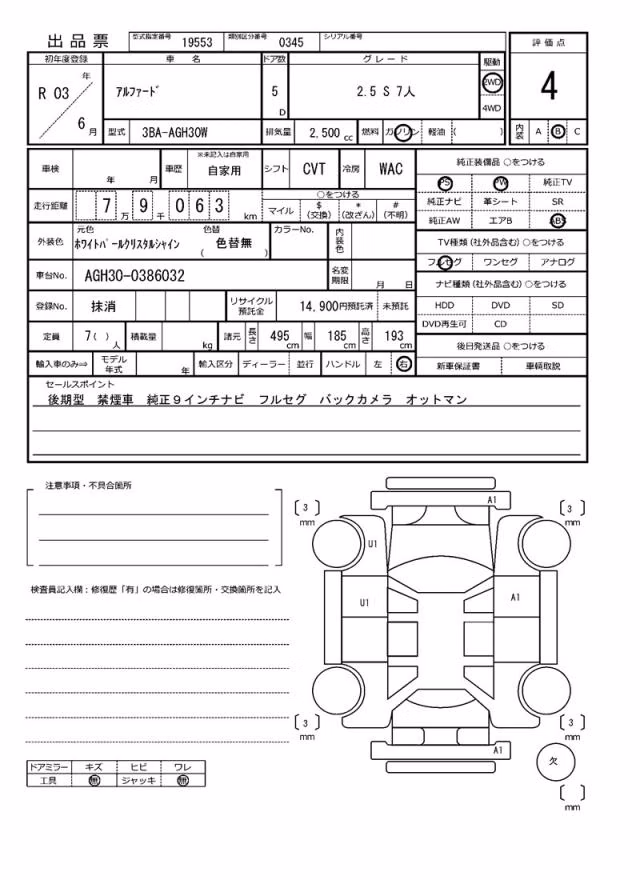 出品票 型式指定番号 19553 類別区分番号 0345 シリアル番号
評価点
4
内装 A B C
初年度登録 車名 ドア数 グレード 駆動
R 03 年 6 月 アルファード 5 D 2.5 S 7人 2WD 4WD
型式 3BA-AGH30W 排気量 2,500 cc 燃料 ガソリン 軽油 ( )
車検 年 月 車歴 ※未記入は自家用 自家用 シフト CVT 冷房 WAC
走行距離 7 万 9 千 0 6 3 km ○をつける マイル $(交換) *(改ざん) #(不明)
外装色 元色 ホワイトパールクリスタルシャイン 色替 ( 色替無 ) カラーNo. 内装色
車台No. AGH30-0386032 名変期限 月 日
登録No. 抹消 リサイクル預託金 14,900円預託済 未預託
定員 7( ) 人 積載量 kg 諸元 長さ 495 cm 幅 185 cm 高さ 193 cm
輸入車のみ⇒ モデル年式 年 輸入区分 ディーラー 並行 ハンドル 左 右
純正装備品 ○をつける
PS PW 純正TV
純正ナビ 革シート SR
純正AW エアB ABS
TV種類(社外品含む)○をつける
フルセグ ワンセグ アナログ
ナビ種類(社外品含む)○をつける
HDD DVD SD
DVD再生可 CD
後日発送品 ○をつける
新車保証書 車輌取説
セールスポイント
後期型 禁煙車 純正9インチナビ フルセグ バックカメラ オットマン
注意事項・不具合箇所
検査員記入欄:修復歴「有」の場合は修復箇所・交換箇所を記入
ドアミラー キズ ヒビ ワレ
工具 無 ジャッキ 無
A1
[ 3 ] mm
[ 3 ] mm
U1
U1
A1
[ 3 ] mm
[ 3 ] mm
A1
欠
[ ] mm